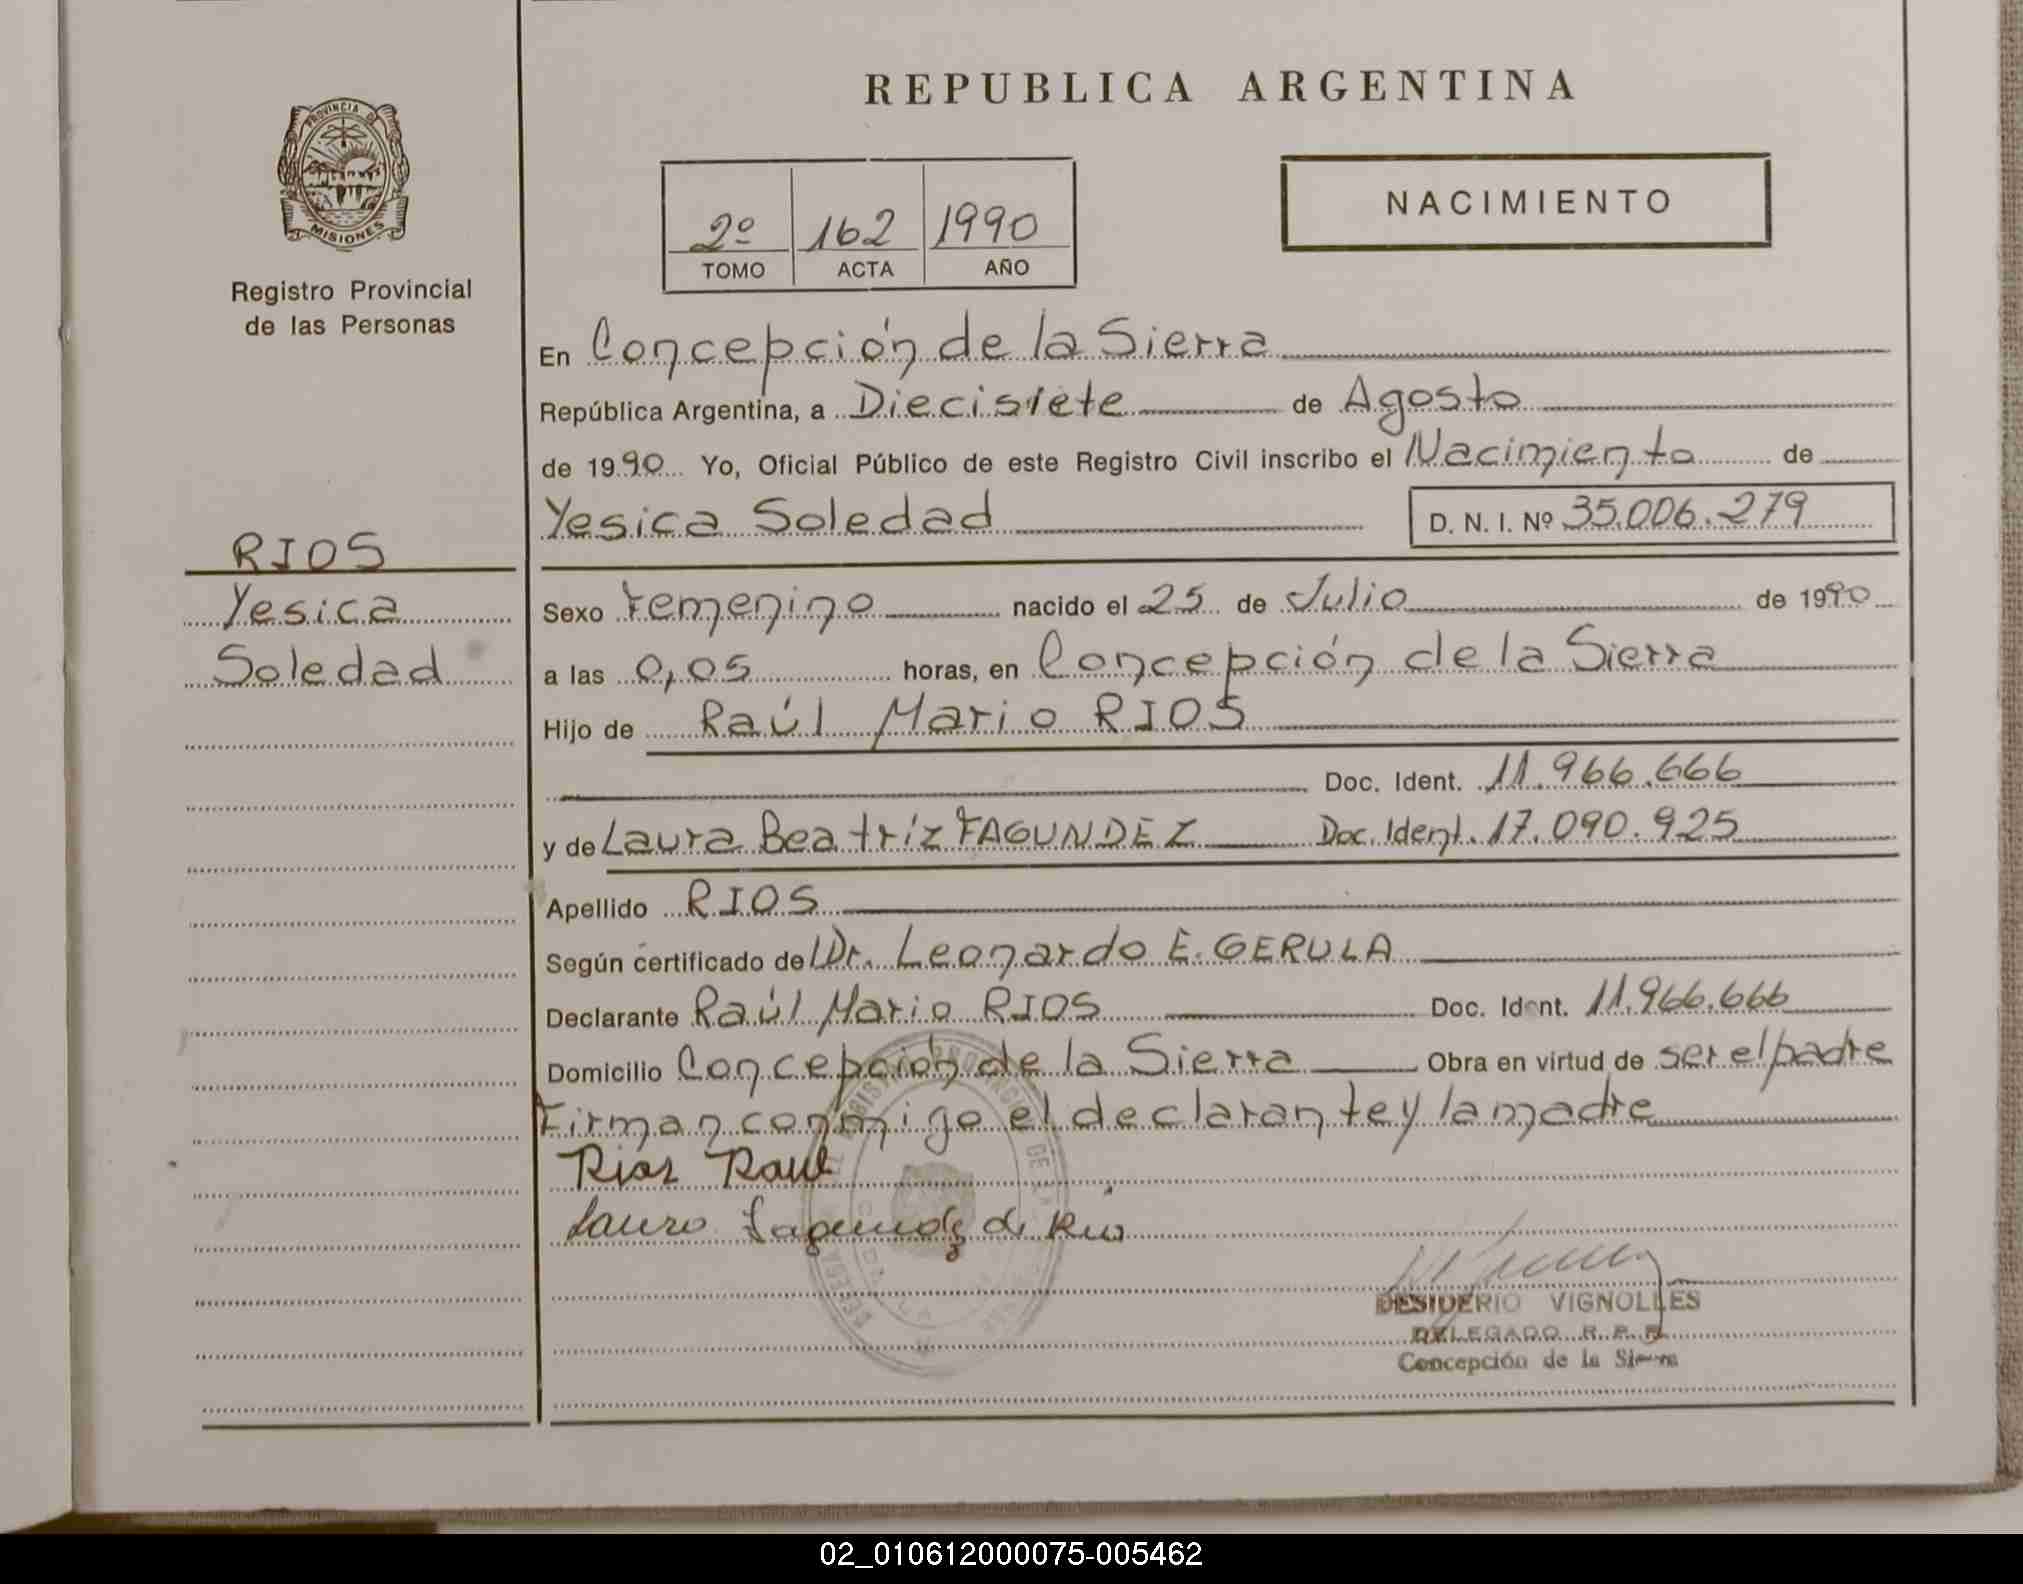 REPUBLICA ARGENTINA
PROVINCIA DE
MISIONES
Registro Provincial
de las Personas
2º 162 1990
TOMO ACTA AÑO
NACIMIENTO
En Concepción de la Sierra
República Argentina, a Diecisiete de Agosto
de 1990 Yo, Oficial Público de este Registro Civil inscribo el Nacimiento de
Yesica Soledad D. N. I. Nº 35.006.279
RIOS
Yesica
Soledad
Sexo Femenino nacido el 25 de Julio de 1990
a las 0,05 horas, en Concepción de la Sierra
Hijo de Raúl Mario RIOS
Doc. Ident. 11.966.666
y de Laura Beatríz FAGUNDEZ Doc. Ident. 17.090.925
Apellido RIOS
Según certificado de Dr. Leonardo E. GERULA
Declarante Raúl Mario RIOS Doc. Ident. 11.966.666
Domicilio Concepción de la Sierra Obra en virtud de ser el padre
Firman conmigo el declarante y la madre
Rios Raul
Laura Fagundez de Rios
DESIDERIO VIGNOLLES
DELEGADO R. P. P.
Concepción de la Sierra
02_010612000075-005462